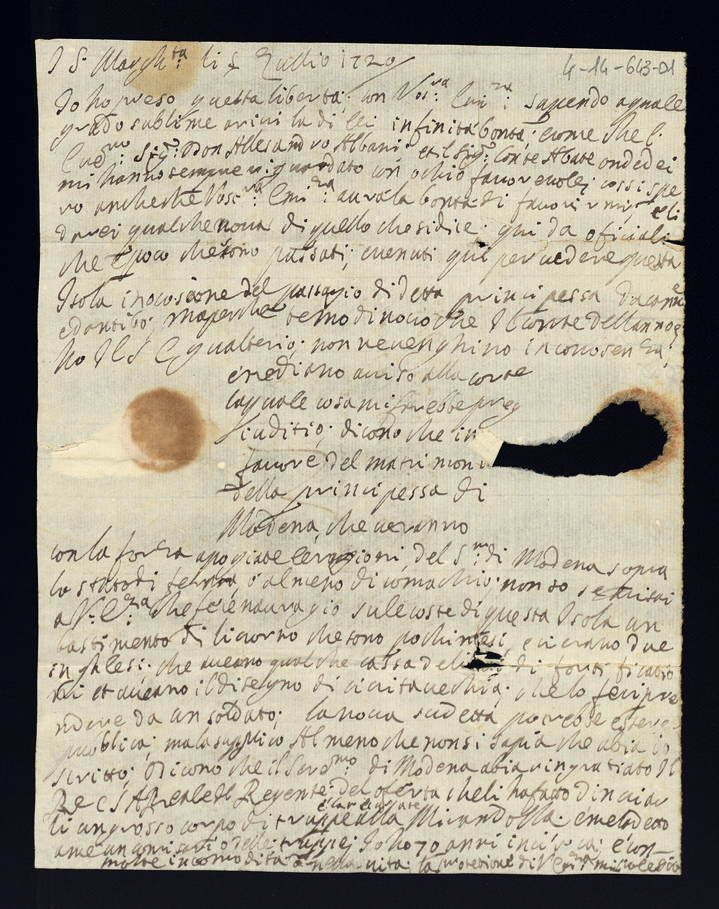 4-14-643-01
I S. Margh.ta li 5 Lullio 1720
Io ho preso questa libertà; con Vos.ra Emi.za: sapendo aquale
grado sublime arivi la di lei infinita bontà; come che l:
Sig.r Don Allesandro Albani et il Sig.r Conte Abate ondedei
mi hanno sempre riguardato con ochio favorevole; cossi spe
ro anche che Vos.ra Emi.za avra la bontà di favorirmi; e li
darei qualche nova di quello che si dice; qui da oficiali
che è poco che sono passati; evenuti qui per vedere questa
Isola in ocosione del passagio di detta principessa
ma perche temo di novo che Il conte
ho Il S gualterio; non venenghino in conosenza;
e ne diano aviso alla corte
la quale cosa mi sarebbe preg
iuditio; dicono che in
favore del matrimoni
della principessa di
Modena, che veranno
con la forza apogiate le ragioni del S.re di Modena sopra
lo stato di ferara o almeno di comachio; non so se avisai
a V. E.za che fece naufragio su le coste di questa Isola un
bastimento di licorno che sono pochi mesi, e ci erano due
inglesi; che aveano qualche cassa de di fortificatio
ni et aveano il disegno di civitavechia; che lo feci pre
ndere da un soldato; la nova sudetta potrebbe essere
publica; ma la suplico Al meno che non si sapia che abia io
scritto; Dicono che il Sere.mo di Modena abia ringratiato Il
Re e S A Reale Il Regente del oferta che li ha fatto d'inviar
li un grosso corpo di truppe alla Mirandolla; e me lo detto
delle truppe; Io ho 70 anni in circa; e con
molte incomodità nella vita; la protetione di V Emi.za mi